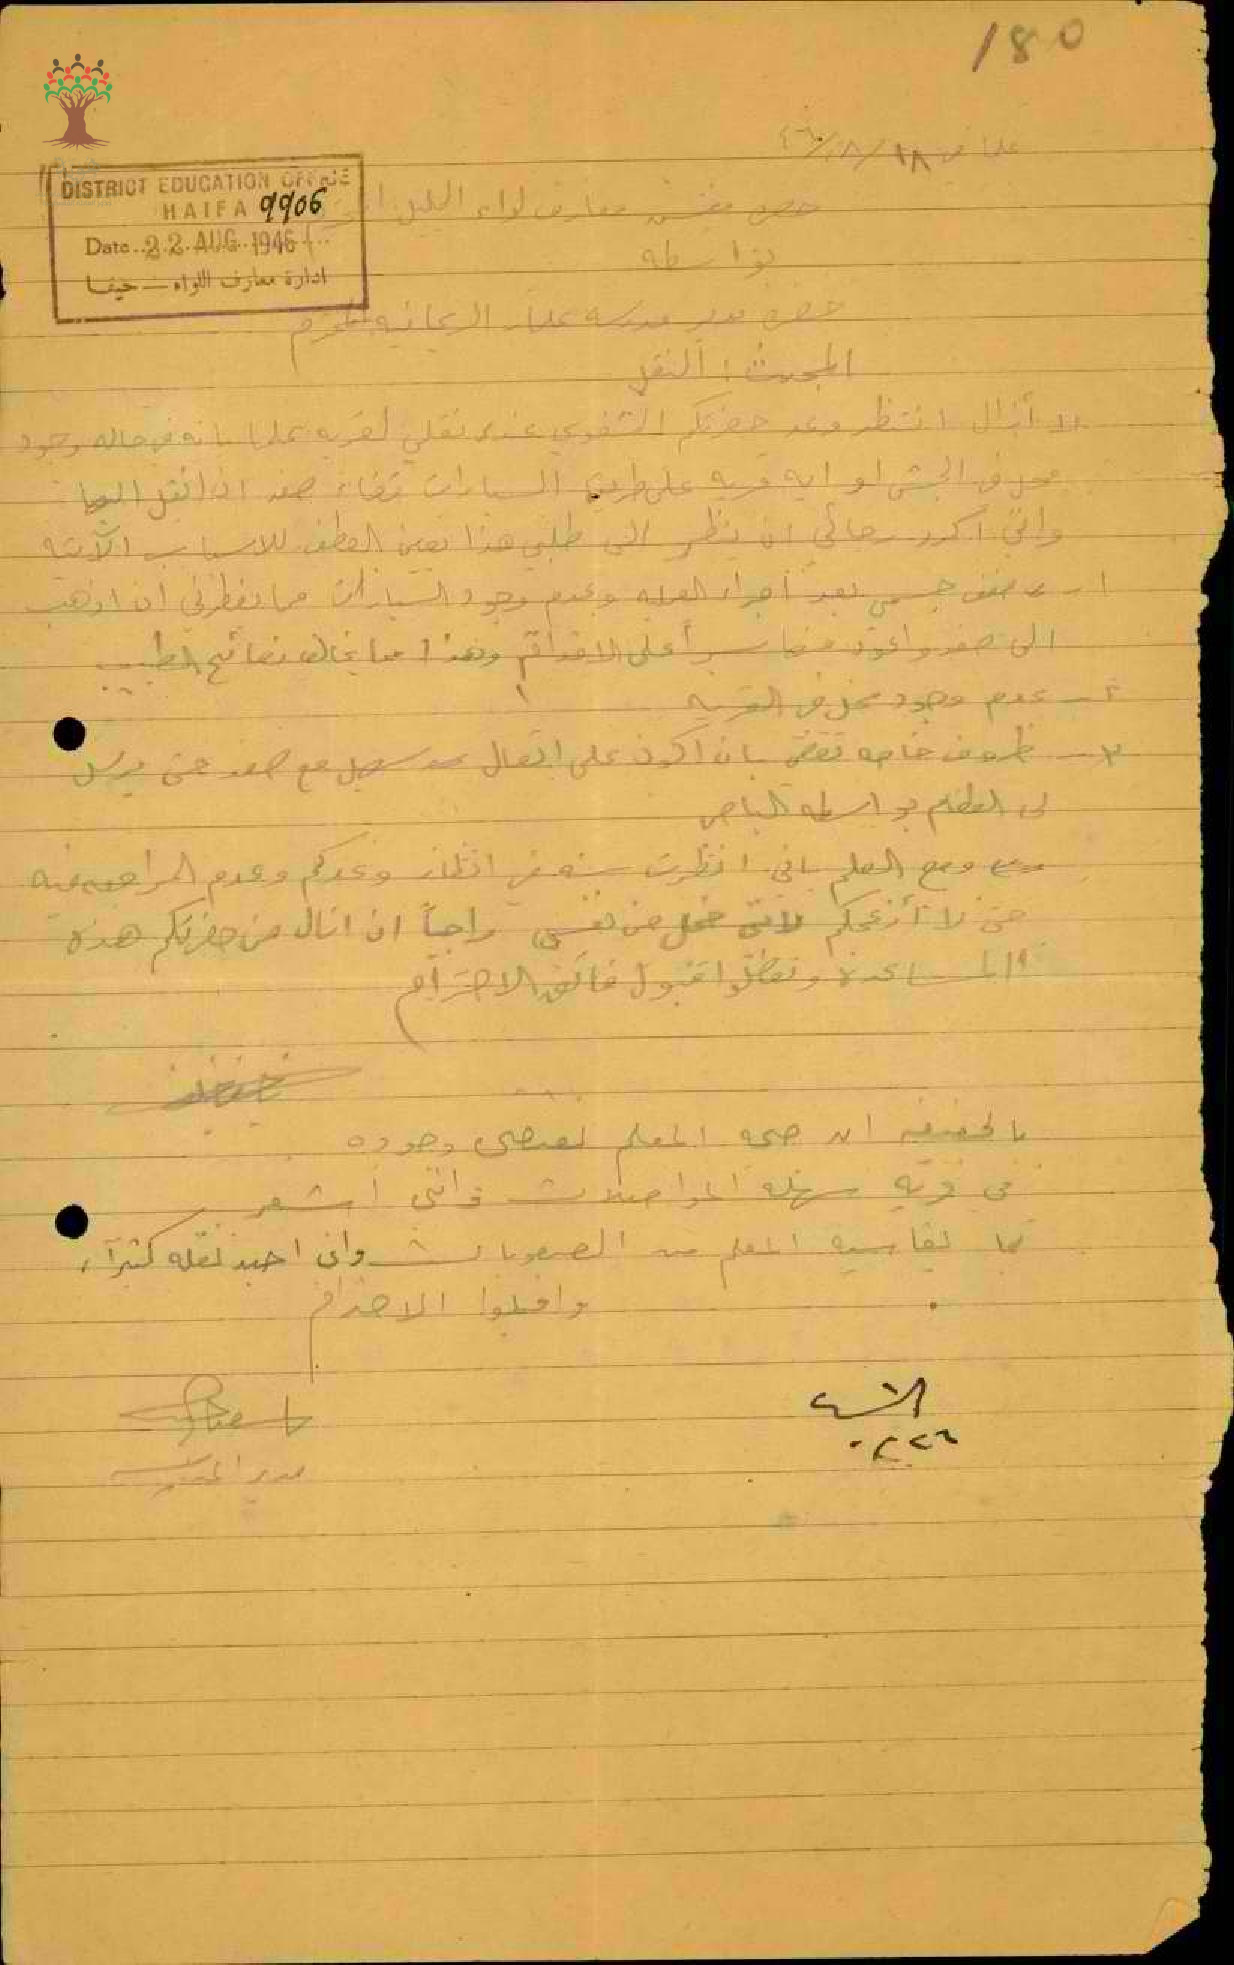 180
علما في ١٨/٨/٤٦
DISTRICT EDUCATION OFFICE
HAIFA 9906
Date 22 AUG 1946
ادارة معارف اللواء — حيفا
حضرة مفتش معارف لواء الجليل المحترم
بواسطة
حضرة مدير مدرسة علما الريحانيه المحترم
المبحث : النقل
لا أزال انتظر وعد حضرتكم الشفوي عند نقلي لقريه علما بانه في حاله وجود
محل في الجش او ايه قريه على طريق السيارات قضاء صفد ان انقل اليها
واني اكرر رجائي ان ينظر الى طلبي هذا بعين العطف للاسباب الآتيه
١ - ضعف جسمي بعد اجراء العمليه وعدم وجود السيارات مما يضطرني ان اذهب
الى صفد واعود منها سيراً على الاقدام وهذا مما يخالف نصائح الطبيب
٢ - عدم وجود محل في القريه
٣ - ظروف خاصه تقضي بان اكون على اتصال سهل مع صفد حتى يرسل
لي الطعام بواسطه الباص
ومع العلم باني انتظرت سنه في انتظار وعدكم وعدم المراجعه فيه
حتى لا أزعجكم لانني خجل من نفسي راجياً ان انال من حضرتكم هذه
المساعدة وتفضلوا بقبول فائق الاحترام
بالحقيقه ان صحه المعلم تقتضي وجوده
في قريه سهله المواصلات فانني اشعر
بما يقاسيه المعلم من الصعوبات واني احبذ نقله كثيراً ،
واقبلوا الاحترام
مدير المدرسة